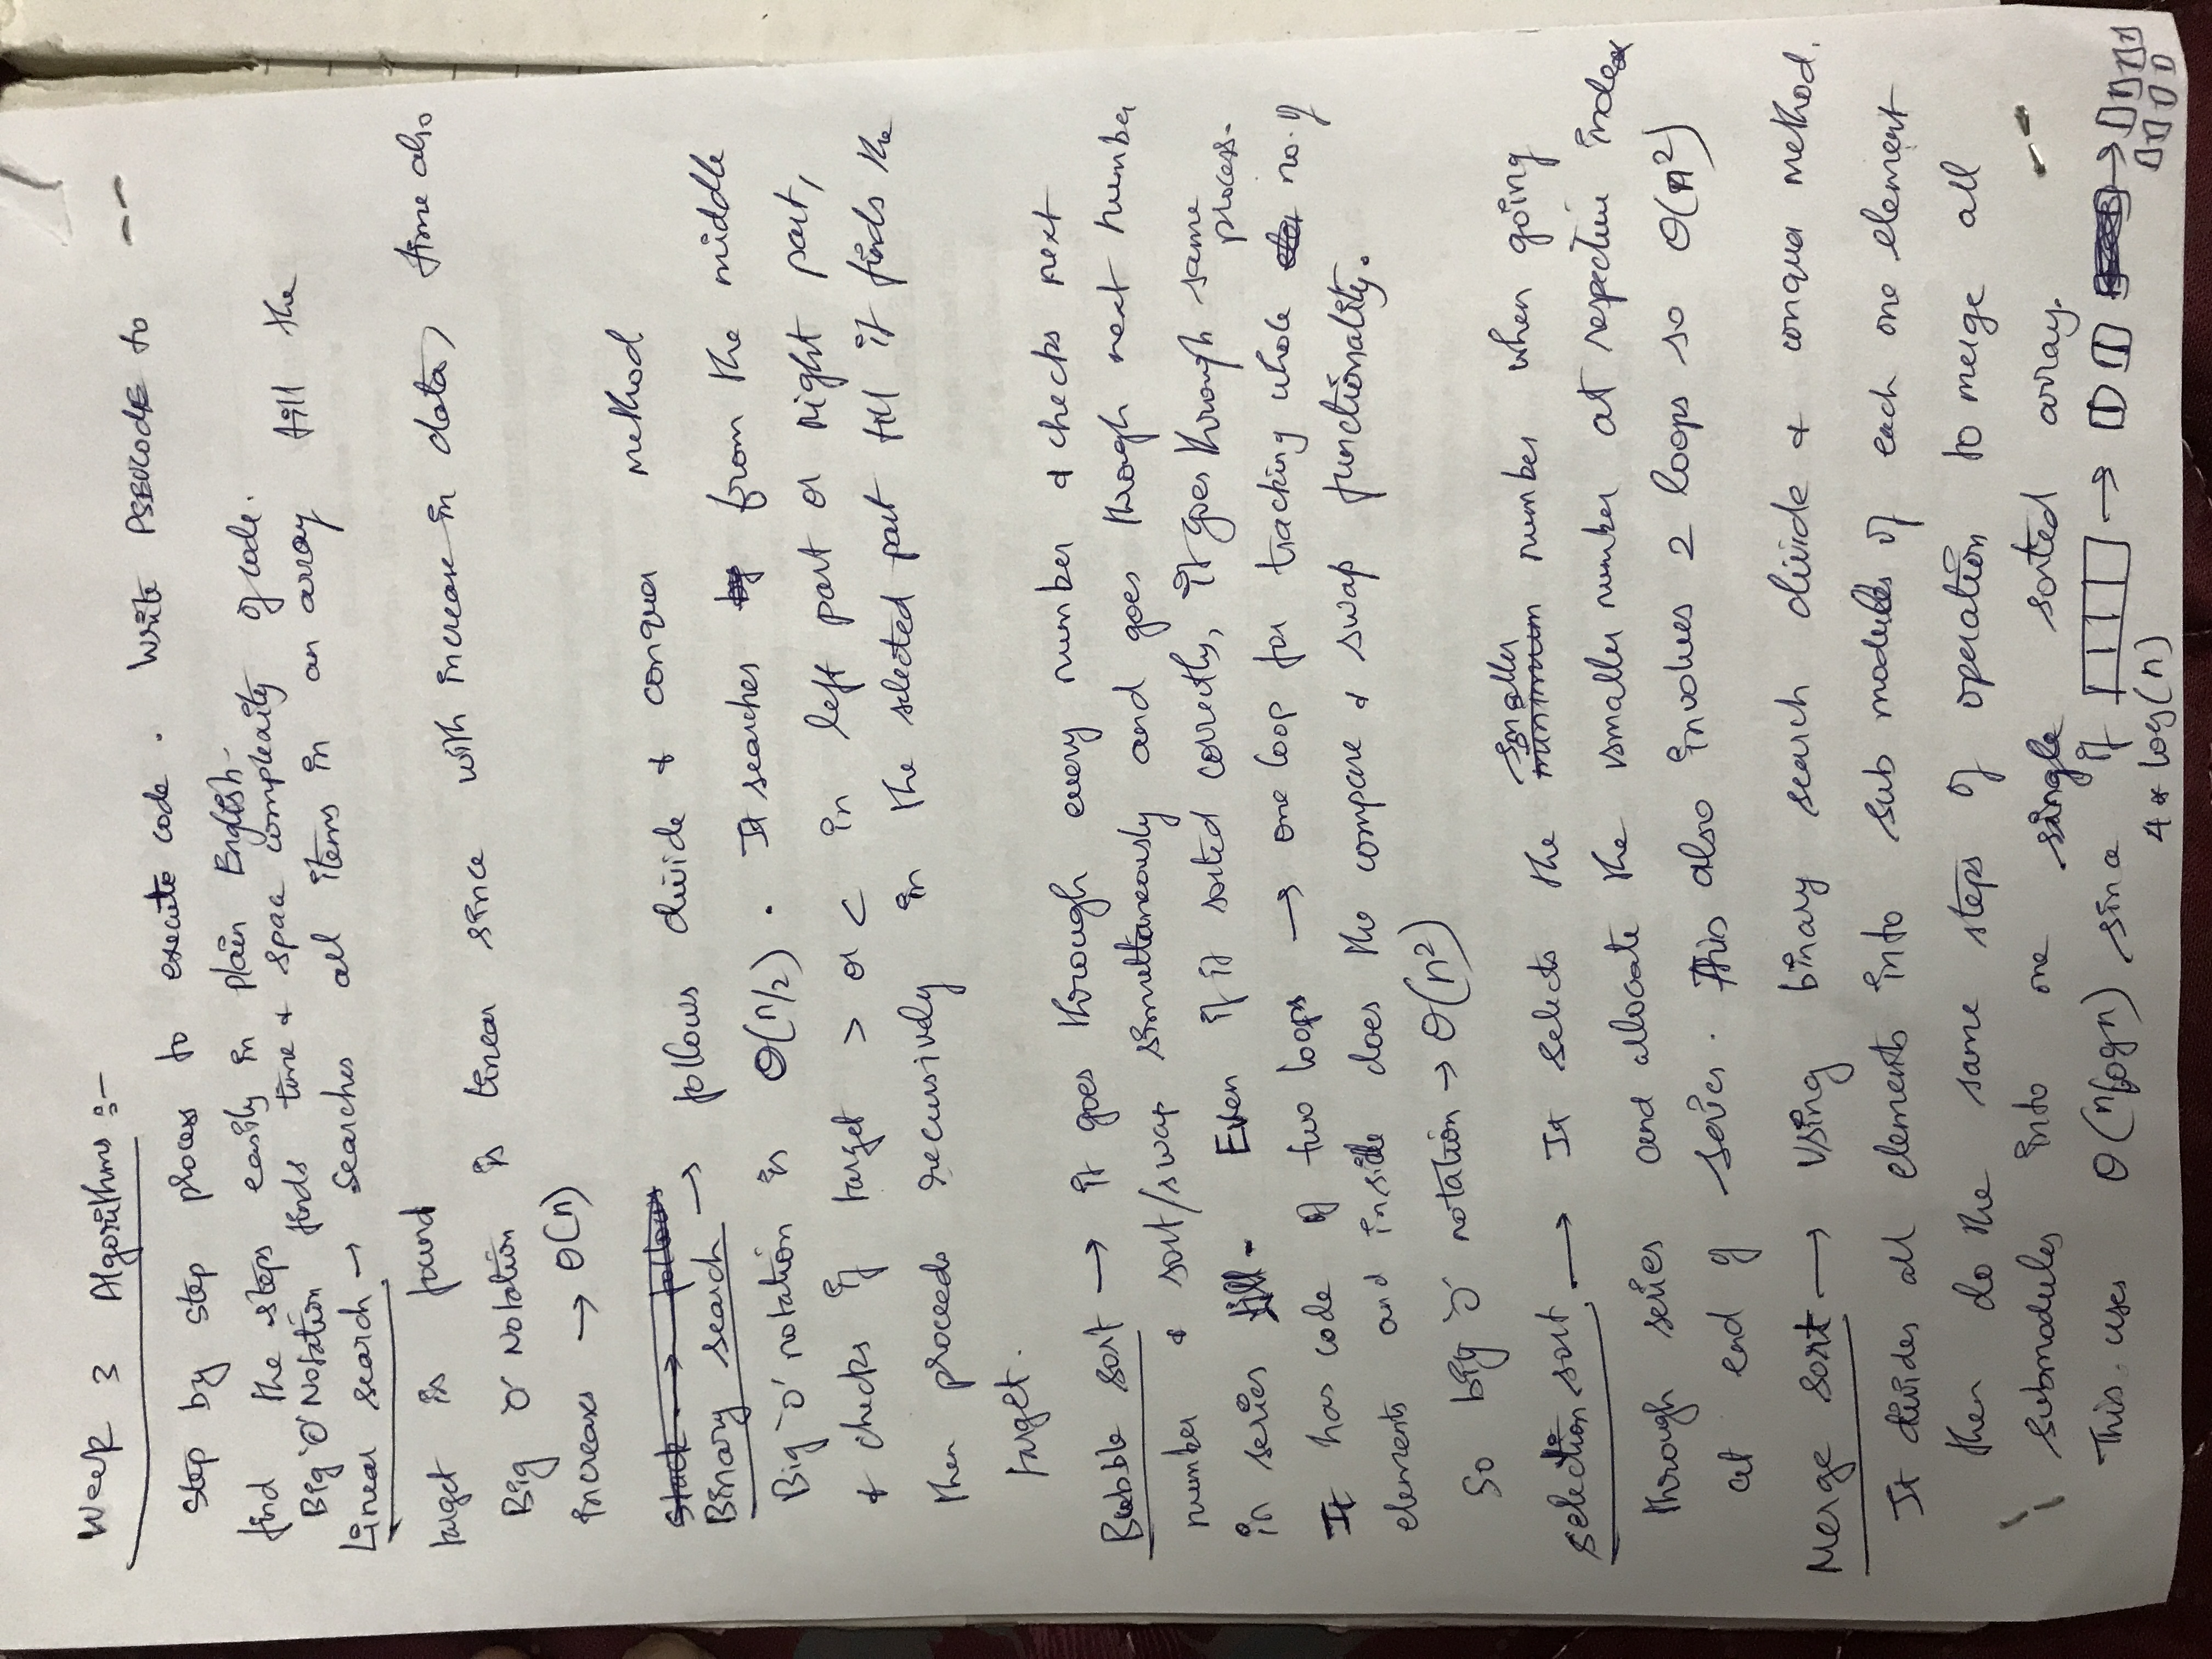 Week 3 Algorithms :-
Step by step process to execute code. Write PSEUCODE to
find the steps easily in plain English.
Big 'O' Notation finds time & space complexity of code.
Linear search → Searches all items in an array till the
target is found
Big 'O' Notation is linear since with increase in data, time also
increases → O(n)
Stack → follows
Binary search → follows divide & conquer method
Big 'O' notation is O(n/2). It searches by from the middle
& checks if target > or < in left part or right part,
then proceeds recursively in the selected part till it finds the
target.
Bubble sort → it goes through every number & checks next
number & sort/swap simultaneously and goes through next number
in series till. Even if it sorted correctly, it goes through same
process.
It has code of two loops → one loop for tracking whole ele no. of
elements and inside does the compare & swap functionality.
So big 'O' notation → O(n²)
smaller
Selection sort → It selects the minimum number when going
through series and allocate the smaller number at respective index
at end of series. This also involves 2 loops so O(n²)
Merge sort → Using binary search divide & conquer method.
It divides all elements into sub modules of each one element
then do the same steps of operation to merge all
submodules into one single sorted array.
This uses O(nlogn) since if → →
4 * log(n)